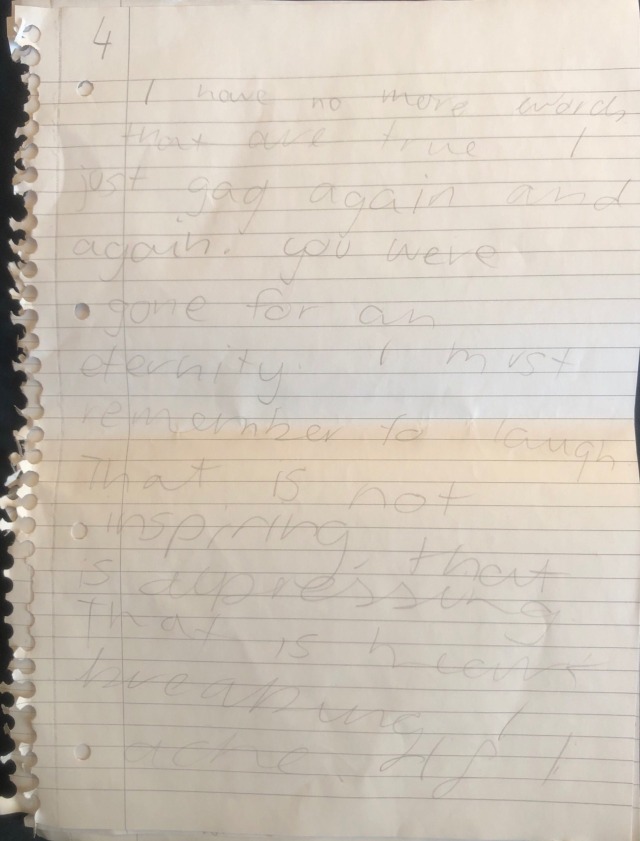 4
I have no more words
that are true I
just gag again and
again. you were
gone for an
eternity. I must
remember to laugh
That is not
inspiring, that
is depressing
that is heart
breaking I
ache.